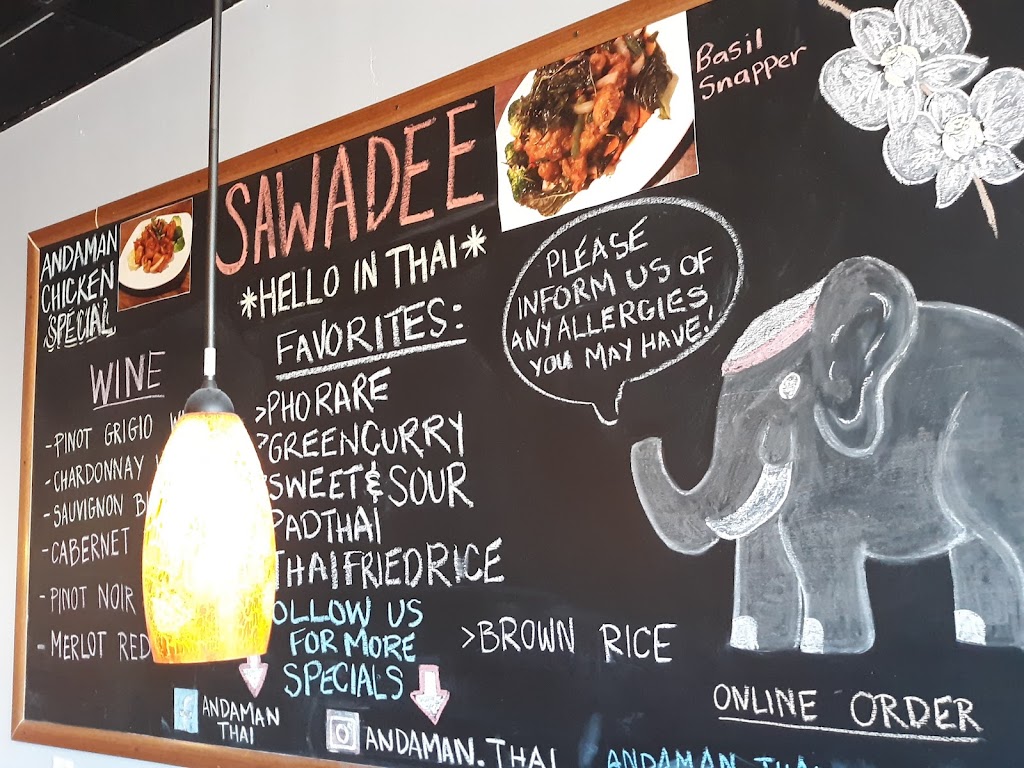 ANDAMAN
CHICKEN
SPECIAL
SAWADEE
*HELLO IN THAI*
Basil
Snapper
WINE
-PINOT GRIGIO
-CHARDONNAY
-SAUVIGNON
-CABERNET
-PINOT NOIR
-MERLOT RED
FAVORITES:
>PHO RARE
GREEN CURRY
SWEET & SOUR
PAD THAI
THAI FRIED RICE
>BROWN RICE
PLEASE
INFORM US OF
ANY ALLERGIES
YOU MAY HAVE!
OLLOW US
FOR MORE
SPECIALS
ANDAMAN
THAI
ANDAMAN.THAI
ONLINE ORDER
ANDAMAN